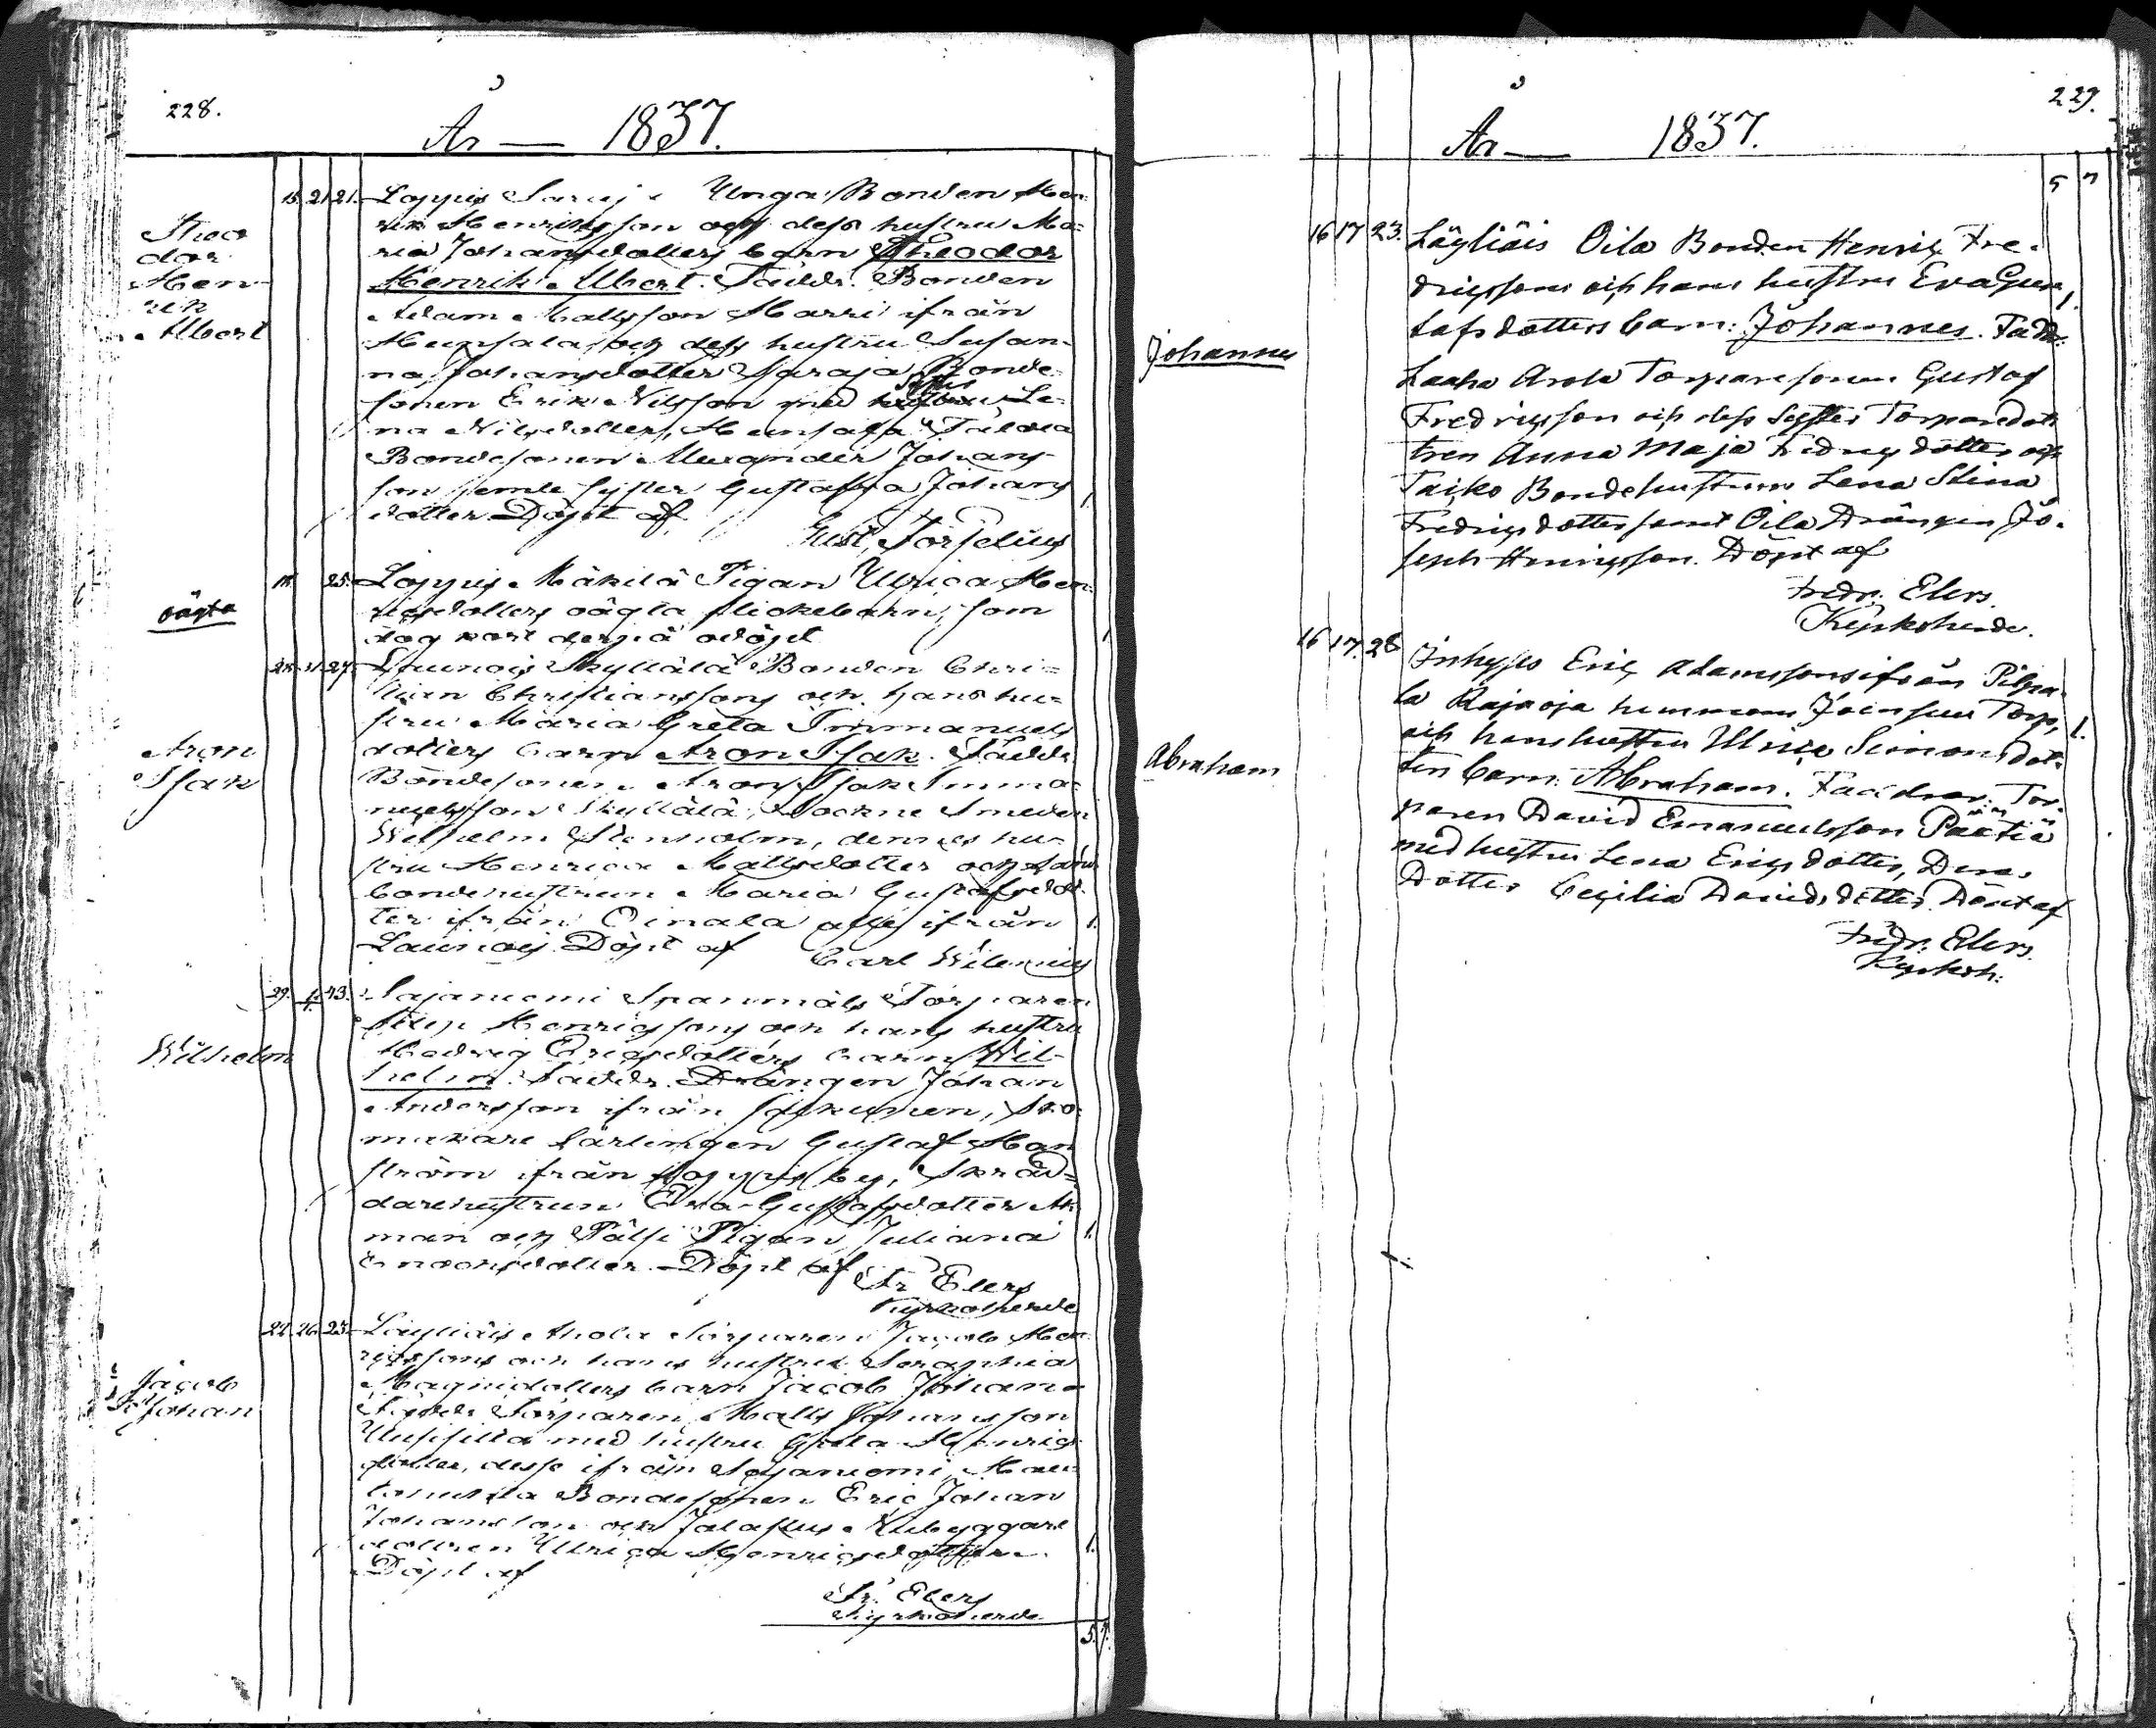 228.
År — 1837.
Theo
dor
Hen-
rik
Albert
15. 21. 21. Loppis Saruj. Unga Bonden Hen-
rik Henriksson och dess hustru Ma-
ria Johansdotters barn Theodor
Henrik Albert. Faddr. Bonden
Adam Mattsson Harri ifrån
och dess hustru Susan-
na Johansdotter Bonde-
sonen Erik Nilsson med Syster Le-
na Nilsdotter,
Bondesonen Alexander Johans-
son jemte syster Gustafva Johans
dotter Döpt af 1.
Gust. Forselius
oägta
18. 25. Loppis Mäkilä Pigan Ulrica Hen-
ricsdotters oägta flickebarn, som
dog odöpt 1.
Aron
Isak
27. Launois Skyttälä Bonden Chri-
stian Christianssons och hans hu-
stru Maria Greta Immanuels
dotters barn Aron Isak. Faddr.
Bondesonen Aron Isak Imma-
nuelsson Skyttälä, Sockne Smeden
Wilhelm Stenholm, dennes hu-
stru Henrica Mattsdotter och
bondehustrun Maria Gustafsdot-
ter ifrån alla ifrån 1.
Launois Döpt af Carl Wilenius
Wilhelm
29. 4. 13. Sajaniemi Torparen
Henricssons och hans hustru
Hedvig Ericsdotters barn Wil-
helm. Faddr. Drängen Johan
Andersson ifrån Sko-
makare Lärlingen Gustaf
ström ifrån Loppis by, Skräd-
darehustrun Eva Gustafsdotter
man och Pälsi Pigan Juliana 1.
Enochsdotter. Döpt af
Fr. Elers
Kyrkoherde
Jacob
Johan
24. 26. 23. Läyliäis Ahola Torparen Jacob Hen-
ricssons och hans hustru Seraphia
Magnidotters barn Jacob Johan
Faddr. Torparen Matts Johansson
Uusitalo med hustru Greta Henrics
dotter, desse ifrån Sajaniemi,
Bondesonen Eric Johan
Johansson och Nybyggare
dottren Ulrica Henricsdotter. 1.
Döpt af
Fr. Elers
Kyrkoherde
5. 7.
229.
År — 1837.
5 7
Johannes
16 17 23. Läyliäis Oila Bonden Henric Fre-
dricssons och hans hustru Eva Gus-
tafsdotters barn: Johannes. Faddr. 1.
Laaka Arola Torparesonen Gustaf
Fredricsson och dess Syster Torparedot
tren Anna Maja Fredricsdotter och
Taiko Bondehustrun Lena Stina
Fredricsdotter samt Oila Drängen Jo-
seph Henricsson. Döpt af
Fredr. Elers.
Kyrkoherde.
Abraham
16 17. 28 Inhyses Eric Adamssons ifrån Pilpa-
la Rajaoja hemmans Torp, 1.
och hans hustru Ulrica Simonsdot-
ters barn: Abraham. Faddrar: Tor-
paren David Emanuelsson Päätiä
med hustru Lena Ericsdotter, Deras
Dotter Cecilia Davidsdotter. Döpt af
Fredr. Elers.
Kyrkoh.